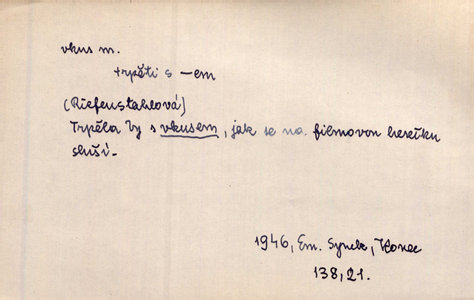 vkus m.
trpěti s -em
(Riefenstahlová)
Trpěla by s vkusem, jak se na filmovou herečku
sluší.
1946, Em. Synek, Konec
138, 21.